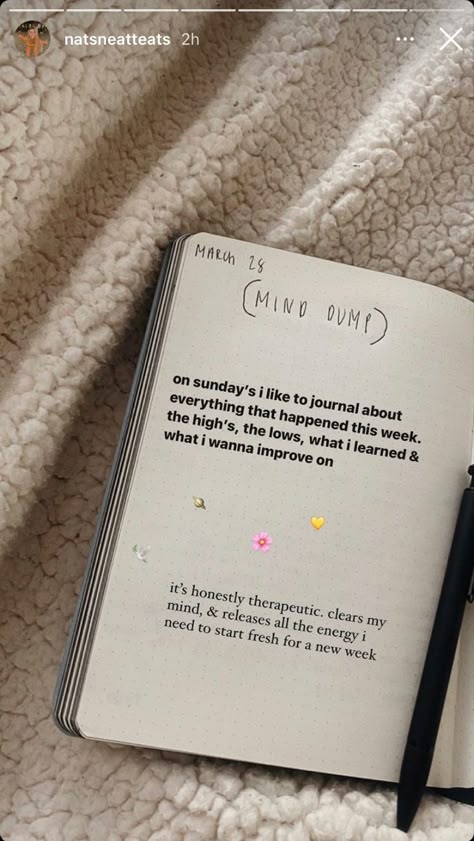 natsneatteats 2h
MARCH 28
(MIND DUMP)
on sunday's i like to journal about
everything that happened this week.
the high's, the lows, what i learned &
what i wanna improve on
it's honestly therapeutic. clears my
mind, & releases all the energy i
need to start fresh for a new week